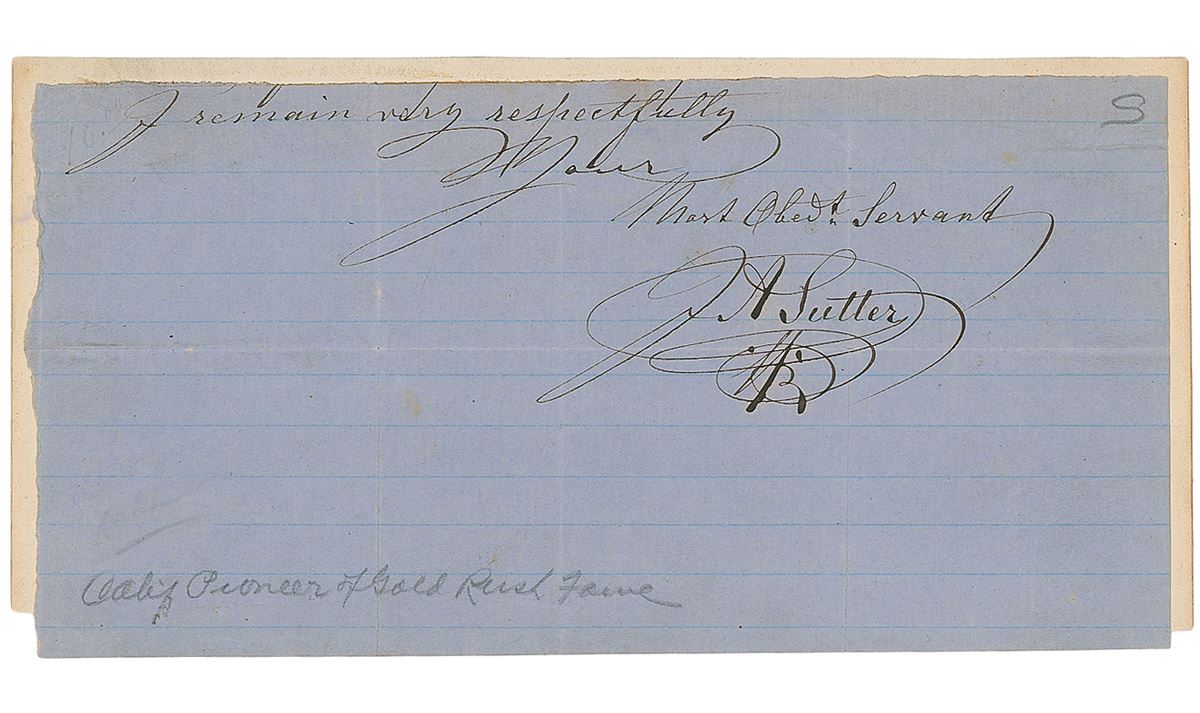 I remain very respectfully
S
Your
Most Obedt. Servant
J A Sutter
Calif Pioneer of Gold Rush Fame